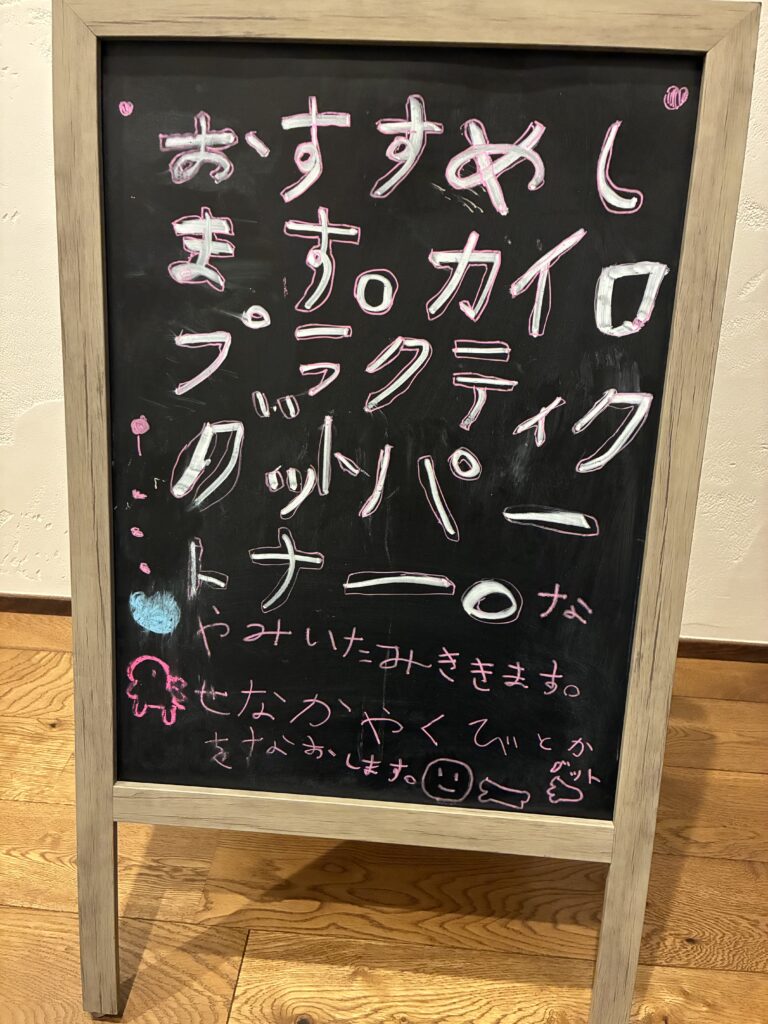 おすすめし
ます。カイロ
プラクティク
グットパー
トナー。な
やみいたみききます。
せなかやくびとか
をなおします。
グット